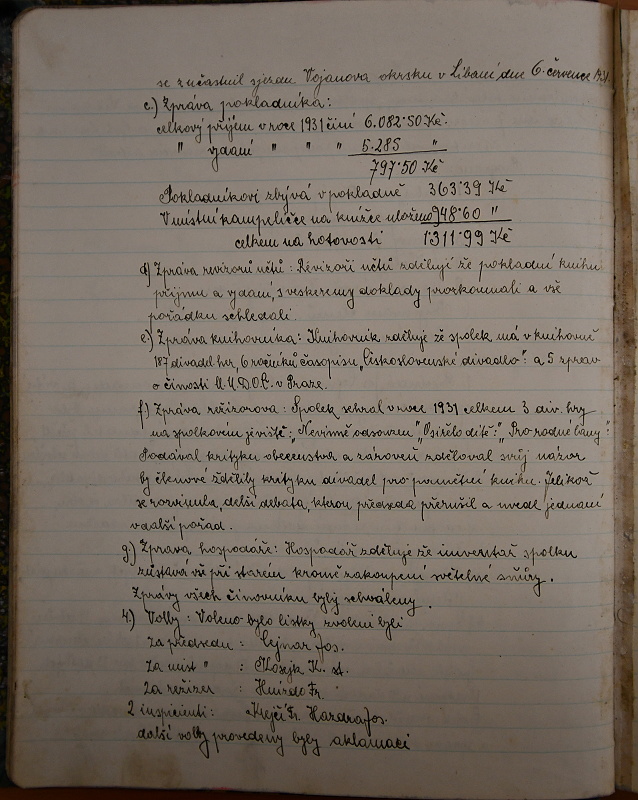 se zučastnil sjezdu Vojanova okrsku v Libani dne 6. července 1931.
c.) Zpráva pokladníka:
celkový příjm v roce 1931 činí 6.082·50 Kč.
" vydaní " " " 5.285 "
797·50 Kč
Pokladníkovi zbývá v pokladně 363·39 Kč
V místní kampeličce na knížce uloženo 948·60 "
celkem na hotovosti 1·311·99 Kč
d) Zpráva revizorů účtů: Revizoři účtů zdělují že pokladní knihu
příjmu a vydaní, s veskeremy doklady prozkoumali a vše
pořádku schledali.
e.) Zpráva knihovníka: Knihovník zděluje že spolek má v knihovně
187 divadel. her, 6 ročníků časopisu „Československé divadlo": a 5 zprav
o činosti U.M.D.O.Č. v Praze.
f.) Zpráva režizorova: Spolek sehral v roce 1931 celkem 3 div. hry
na spolkovém jevišti: „Nevinně odsouzen" „Osiřelo dítě": „Pro rodné lany":
Podával krityku obecenstva a zároveň zděloval svůj názor
by členové zdělily krityku divadel pro pamětní knihu. Jelikož
se rozvinula, delší debata, kterou předseda přerušil a uvedl jednaní
v další pořad.
g.) Zprava hospodáře: Hospodář zděluje že inventář spolku
zůstavá vše při starém kromě zakoupení světelné šňůry.
Zprávy všech činovníku byly schváleny.
4.) Volby: Voleno bylo lístky zvoleni byli
za předsedu: Cejnar Jos.
Za míst " : Kosejk K. st.
Za režizer : Hnízdo Fr.
2 inspicienti: Krejčí Fr. Hazdra Jos.
další volby provedeny byly aklamací